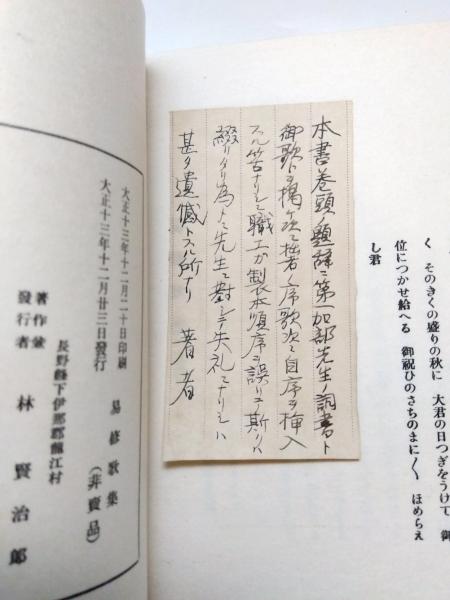 く　そのきくの盛りの秋に　大君の日つぎをうけて　御
位につかせ給へる　御祝ひのさちのまに〱　ほめらえ
し君
本書巻頭ノ題辞ニ第一加部先生ノ詞書ト
御歌トヲ掲ゲ次ニ拙者ノ序歌次ニ自序ヲ挿入
スル筈ナリシニ職工ガ製本順序ヲ誤リテ斯クハ
綴リタリ為メニ先生ニ対シテ失礼ニナリシハ
甚ダ遺憾トスル所ナリ　著者
大正十三年十二月二十日印刷
大正十三年十二月廿三日發行
易修歌集
（非賣品）
長野縣下伊那郡龍江村
著作兼
發行者　林　賢治郎